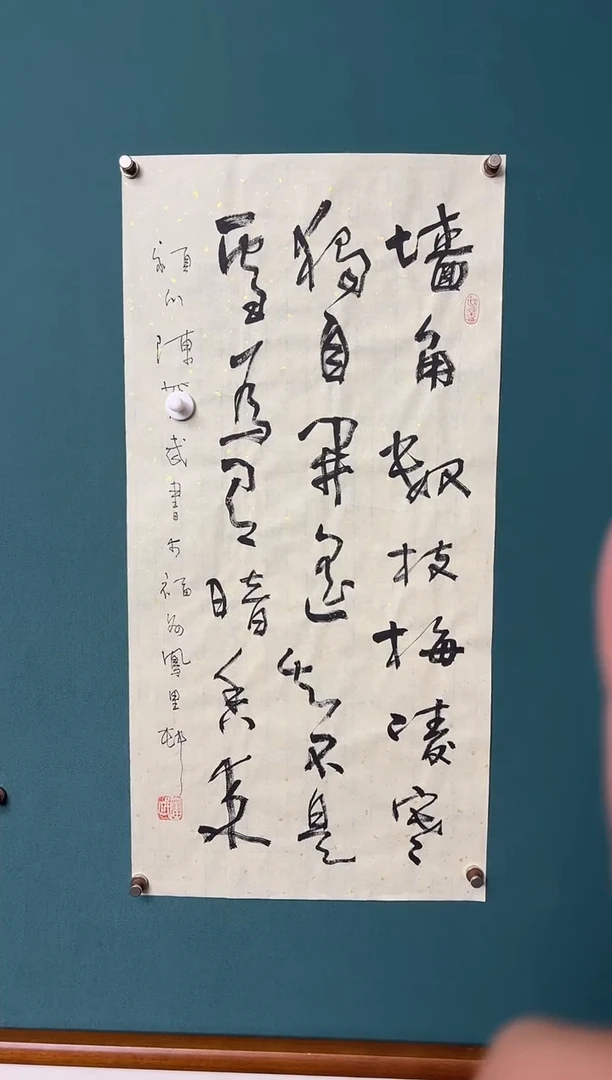 墙角数枝梅凌寒
独自开遥知不是
雪为有暗香来
陈 武书于福州凤里村